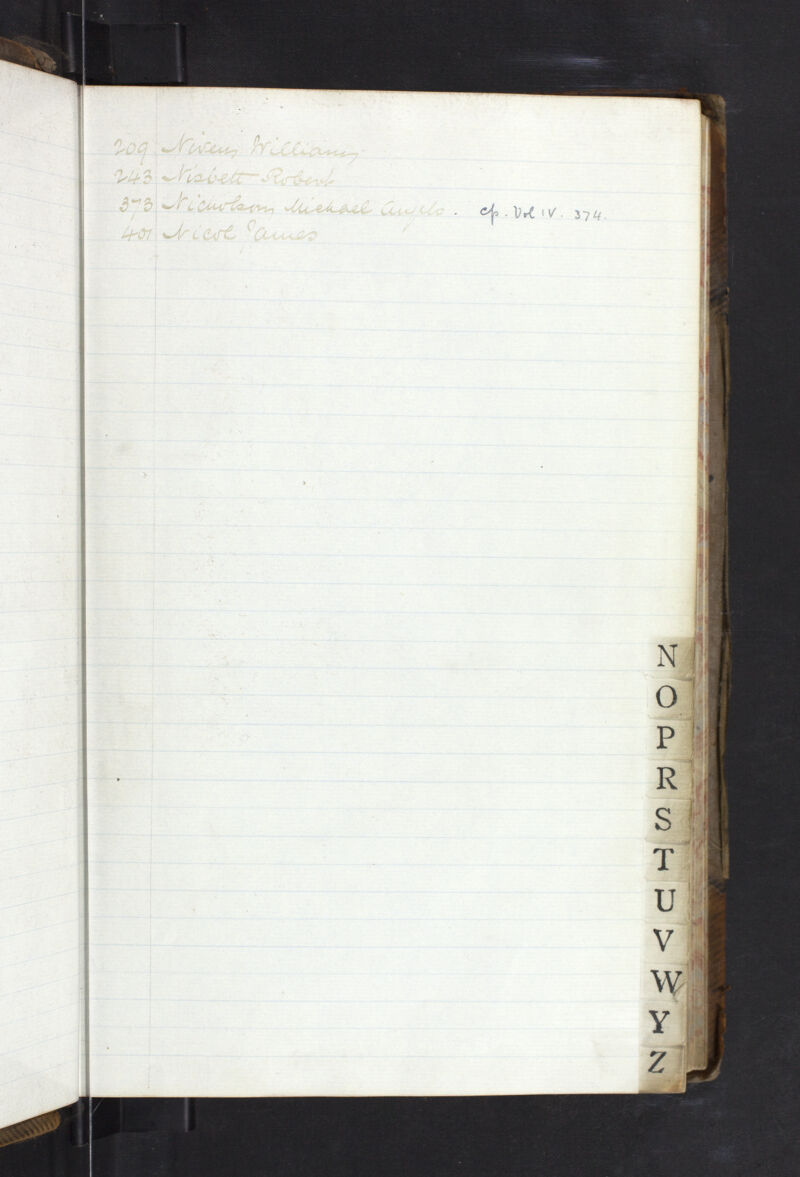 209 Nivens William
243 Nisbett Robert
373 Nicholson Michael Angelo. cp. Vol IV. 374.
401 Nicol James
N
O
P
R
S
T
U
V
W
Y
Z